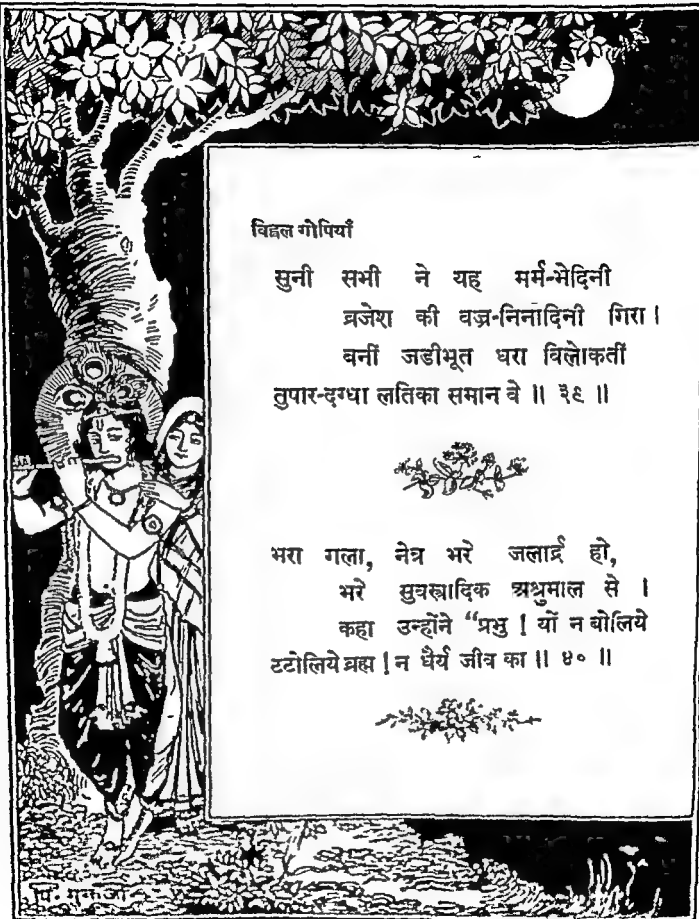 विह्वल गोपियाँ
सुनी सभी ने यह मर्म-भेदिनी
व्रजेश की वज्र-निनादिनी गिरा ।
वनीं जडीभूत धरा विलोकतीं
तुपार-दग्धा लतिका समान वे ॥ ३९ ॥
भरा गला, नेत्र भरे जलार्द्र हो,
भरे सुवस्त्रादिक अश्रुमाल से ।
कहा उन्होंने “प्रभु ! यों न वोलिये
टटोलिये ब्रह्म ! न धैर्य जीव का ॥ ४० ॥